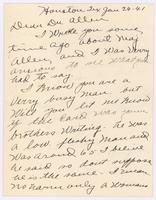 Houston Tex Jan 20-41
Dear Dr Allen
I Wrote you some
time ago about May
Allen, and I Was Very
anxious to see What you
had to say.
I Know you are a
Very busy man but
Will you let me Know
if the Card was your
brothers Writing. he was
a low, fleshy Man and
Was around 65 I believe
he said so dont suppose
he is the same. I mean
no harm only a Womans